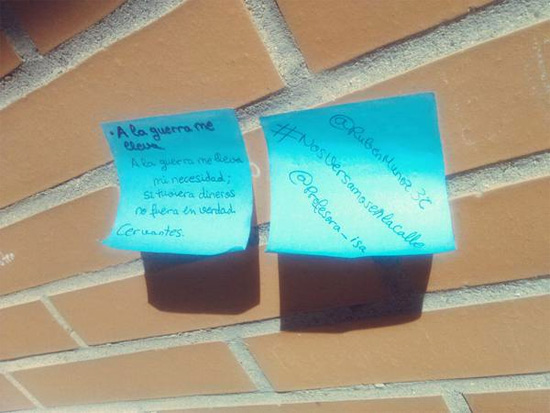 · A la guerra me
lleva.
A la guerra me lleva
mi necesidad;
si tuviera dineros
no fuera en verdad
Cervantes.
@RubénMunoz3C
#NosVersamosenlaCalle
@Profesora_isa